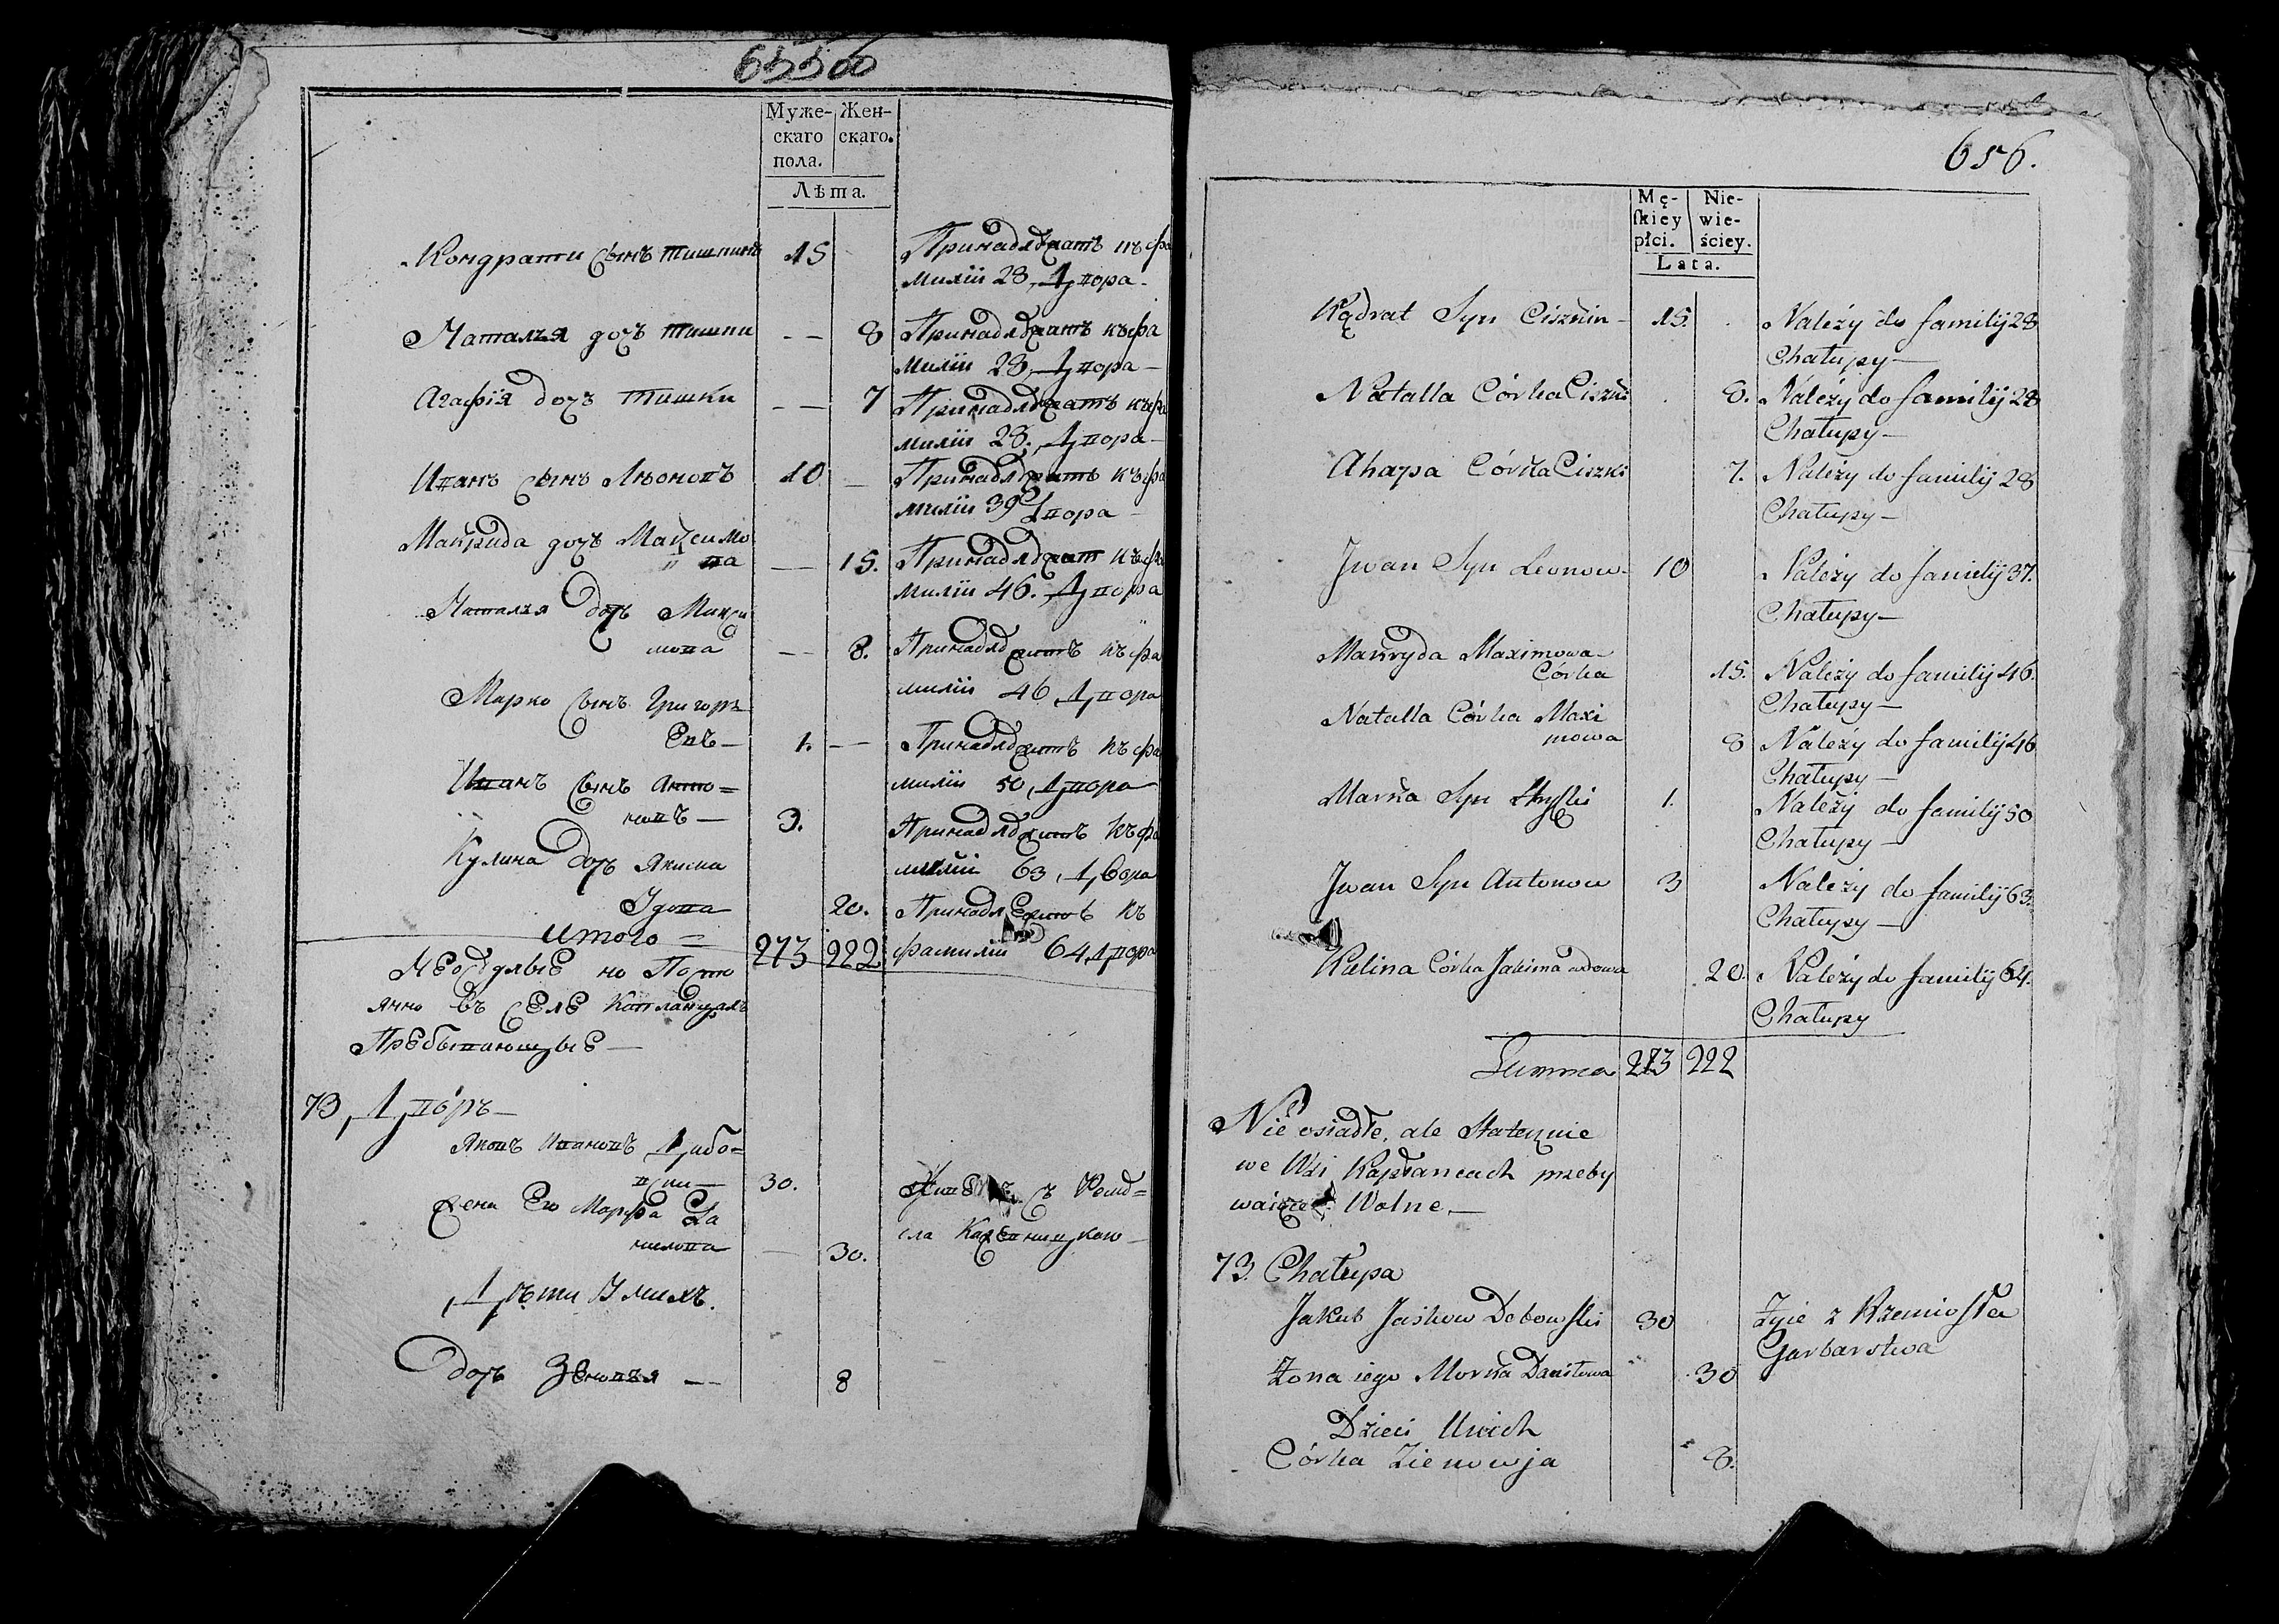 65500
Муже-
скаго
пола.
Жен-
скаго.
Лѣта.
Кондрати сынъ тишкинъ 15 Принадлежатъ къ фа
милїи 28, Двора -
Наталья дочъ тишки — 8 Принадлежатъ къ фа
милїи 28, Двора —
Агафїя дочъ тишки — 7 Принадлежатъ къ фа
милїи 28. Двора —
Иванъ сынъ Лѣоновъ 10 — Принадлежатъ къ фа
милїи 39 Двора —
Маврида дочъ Максимо
ва — 15. Принадлежат къ фа
милїи 46. Двора
Наталья дочъ Макси
мова — 8. Принадлежитъ къ фа
милїи 46 Двора
Марко сынъ Григорь
евъ — 1. — Принадлежитъ къ фа
милїи 50, Двора
Иванъ сынъ Анто=
новъ — 3. Принадлежитъ къ фа
милїи 63, Двора
Кулина дочъ Якима
20. Принадлежитъ къ
Итого = 273 222 фамилїи 64 Двора
Неоседлые но Посто
янно въ селе Капланцахъ
Пребывающые —
73, Дворъ —
Яковъ Ивановъ Дабо=
вски — 30.
жена Его Марфа Да
нилова — 30.
Живетъ съ Ремѣ=
сла Кожевницкаго —
Дѣти У нихъ.
дочъ Зеновья — 8
656.
Mę-
skiey
płci.
Nie-
wie-
ściey.
Lata.
Kądrat Syn Ciszkin - 15. Należy do familij 28
Chałupy —
Natalla Córka Ciszki 8. Należy do familij 28
Chałupy —
Ahapa Córka Ciszki 7. Należy do familij 28
Chałupy —
Jwan Syn Leonow - 10 Należy do familij 37.
Chałupy —
Mawryda Maximowa -
Córka 15. Należy do familij 46.
Chałupy —
Natalla Córka Maxi
mowa 8 Należy do familij 46
Chałupy —
Marka Syn Hryski 1. Należy do familij 50
Chałupy —
Jwan Syn Antonow 3 Należy do familij 63.
Chałupy —
Kulina Córka Jakima wdowa 20. Należy do familij 64.
Chałupy
Summa 273 222
Nie osiadłe, ale statecznie
we Wsi Kapłancach przeby
waiące Wolne. —
73. Chałupa
Jakub Jaśkow Dobowski 30 Żyie z Rzemiosła
Garbarstwa
Żona iego Morka Daniłowa 30
Dzieci Unich
Córka Zienowja 8.